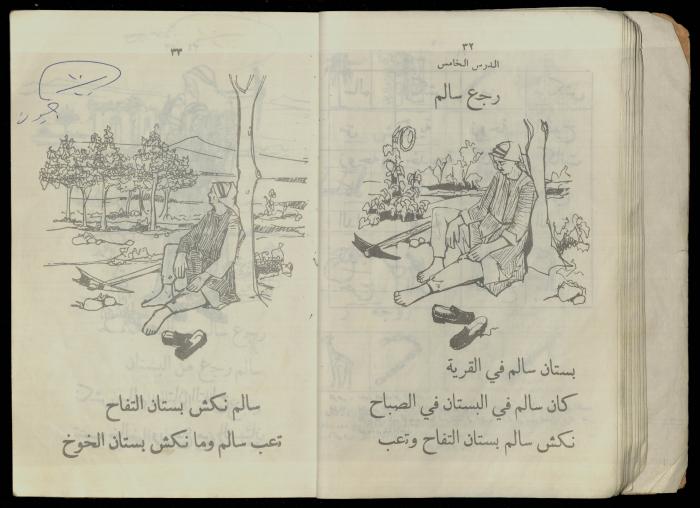 ٣٢
الدرس الخامس
رجع سالم
بستان سالم في القرية
كان سالم في البستان في الصباح
نكش سالم بستان التفاح وتعب
٣٣
١٠
سالم نكش بستان التفاح
تعب سالم وما نكش بستان الخوخ